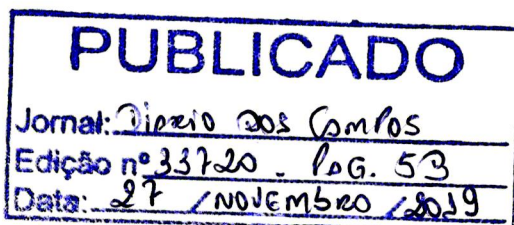 PUBLICADO
Jornal: Diário dos Campos
Edição nº 33720 - PÁG. 5B
Data: 27 / NOVEMBRO / 2019